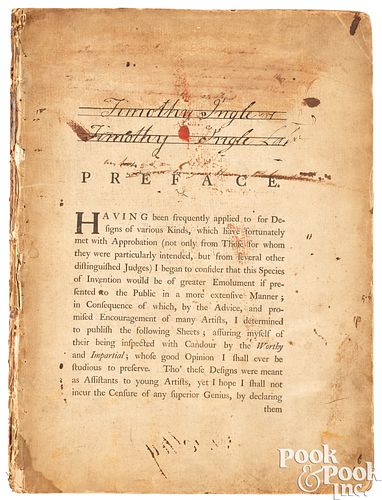 Timothy Ingle
Timothy Ingle
PREFACE.
HAVING been frequently applied to for De-
signs of various Kinds, which have fortunately
met with Approbation (not only from Those for whom
they were particularly intended, but from several other
distinguished Judges) I began to consider that this Species
of Invention would be of greater Emolument if pre-
sented to the Public in a more extensive Manner;
in Consequence of which, by the Advice, and pro-
mised Encouragement of many Artists, I determined
to publish the following Sheets; assuring myself of
their being inspected with Candour by the Worthy
and Impartial; whose good Opinion I shall ever be
studious to preserve. Tho' these Designs were meant
as Assistants to young Artists, yet I hope I shall not
incur the Censure of any superior Genius, by declaring
them
POOK
& POOK
Inc